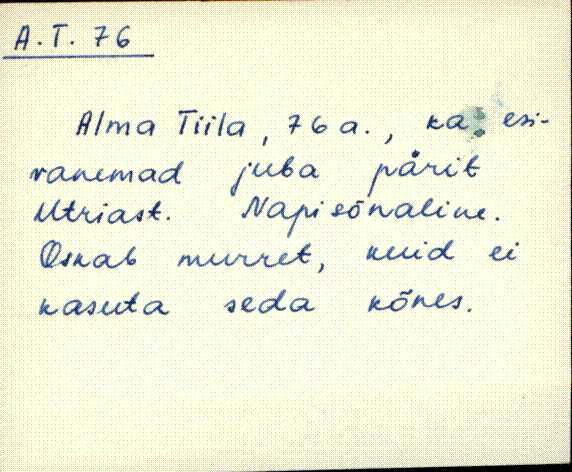 A.T. 76
Alma Tiila, 76 a., ka esi-
vanemad juba pärit
Utriast. Napisõnaline.
Oskab murret, kuid ei
kasuta seda kõnes.